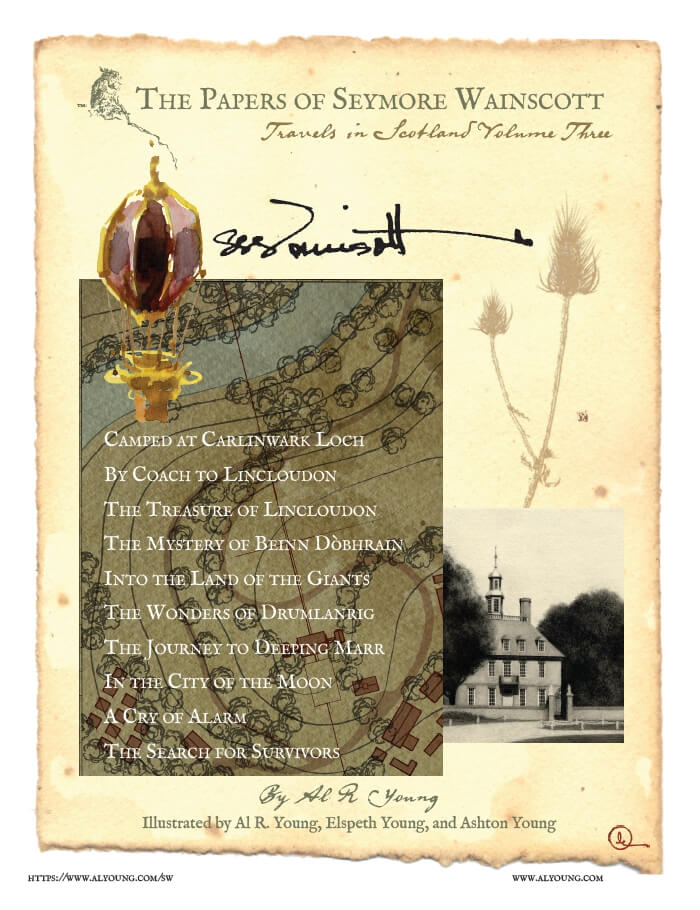 ™
The Papers of Seymore Wainscott
Travels in Scotland Volume Three
Camped at Carlinwark Loch
By Coach to Lincloudon
The Treasure of Lincloudon
The Mystery of Beinn Dòbhrain
Into the Land of the Giants
The Wonders of Drumlanrig
The Journey to Deeping Marr
In the City of the Moon
A Cry of Alarm
The Search for Survivors
By Al R Young
Illustrated by Al R. Young, Elspeth Young, and Ashton Young
https://www.alyoung.com/sw
www.alyoung.com